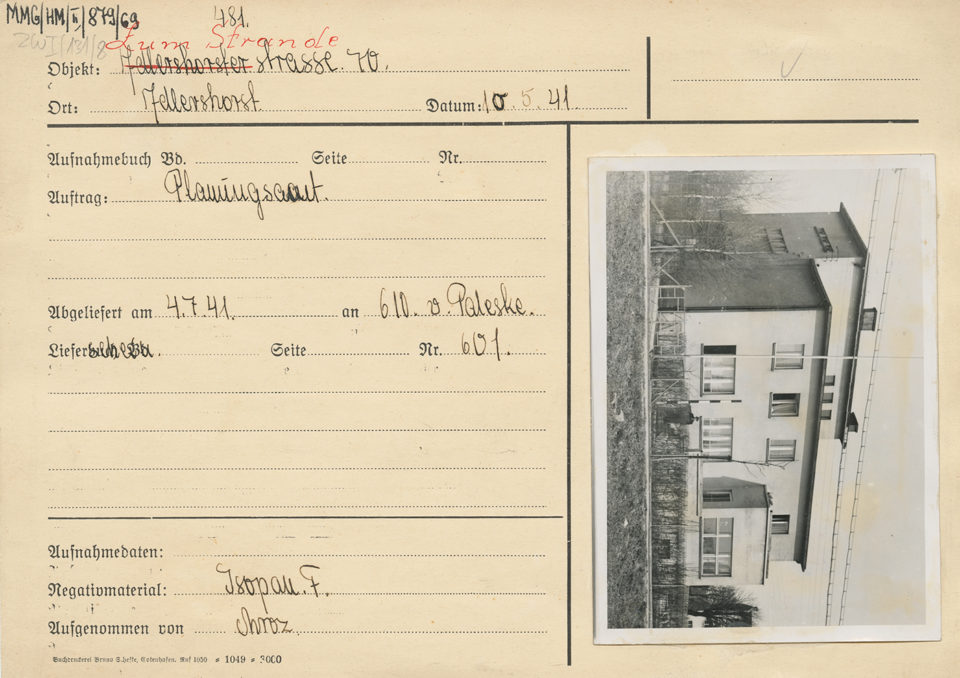 MMG/HM/II/879/69
481.
ZWI/131/8
Zum Strande
Objekt: Adlershorster strasse. 70.
Ort: Adlershorst Datum: 10.5.41.
Aufnahmebuch Bd. Seite Nr.
Auftrag: Planungsamt.
Abgeliefert am 4.7.41. an 610. v. Paleske.
Seite Nr. 601.
Aufnahmedaten:
Negativmaterial: Isopan. F.
Aufgenommen von Mroz
Buchdruckerei Bruno Gotenhafen. Ruf 1050 = 1049 = 3000